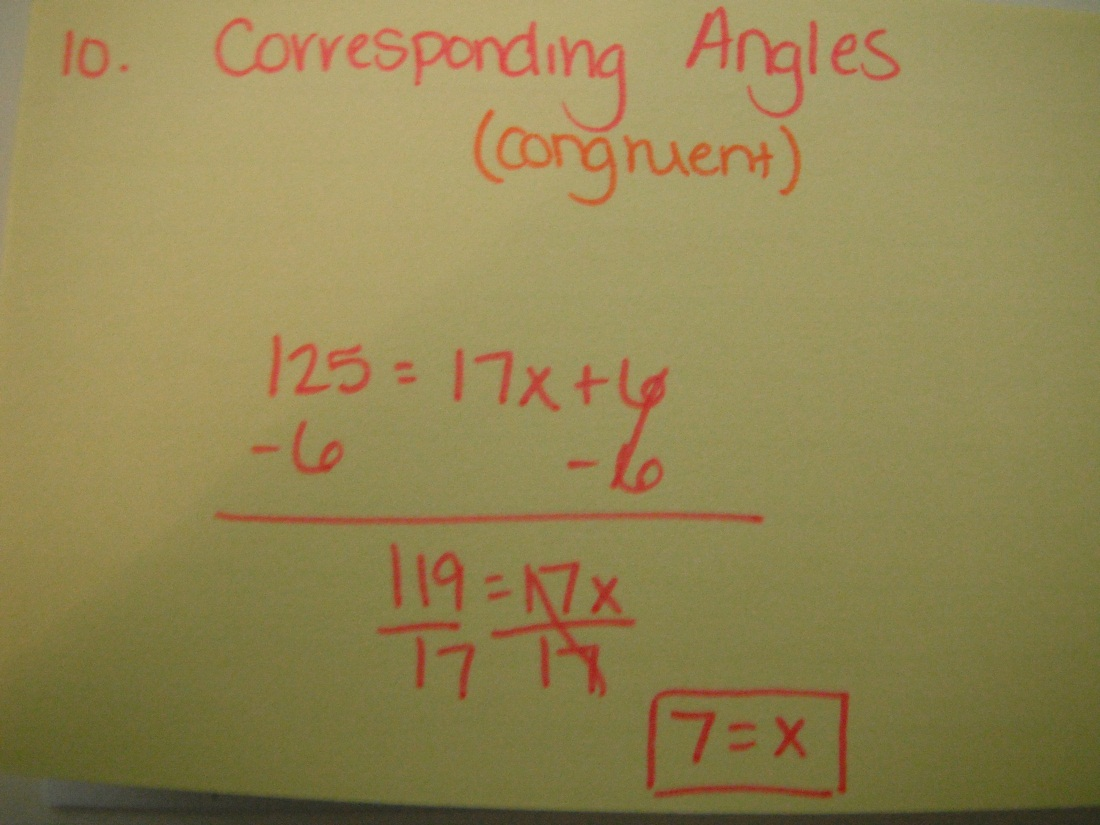 10. Corresponding Angles
(congruent)
125 = 17x + 6
-6 -6
119 = 17x
17 17
7 = x